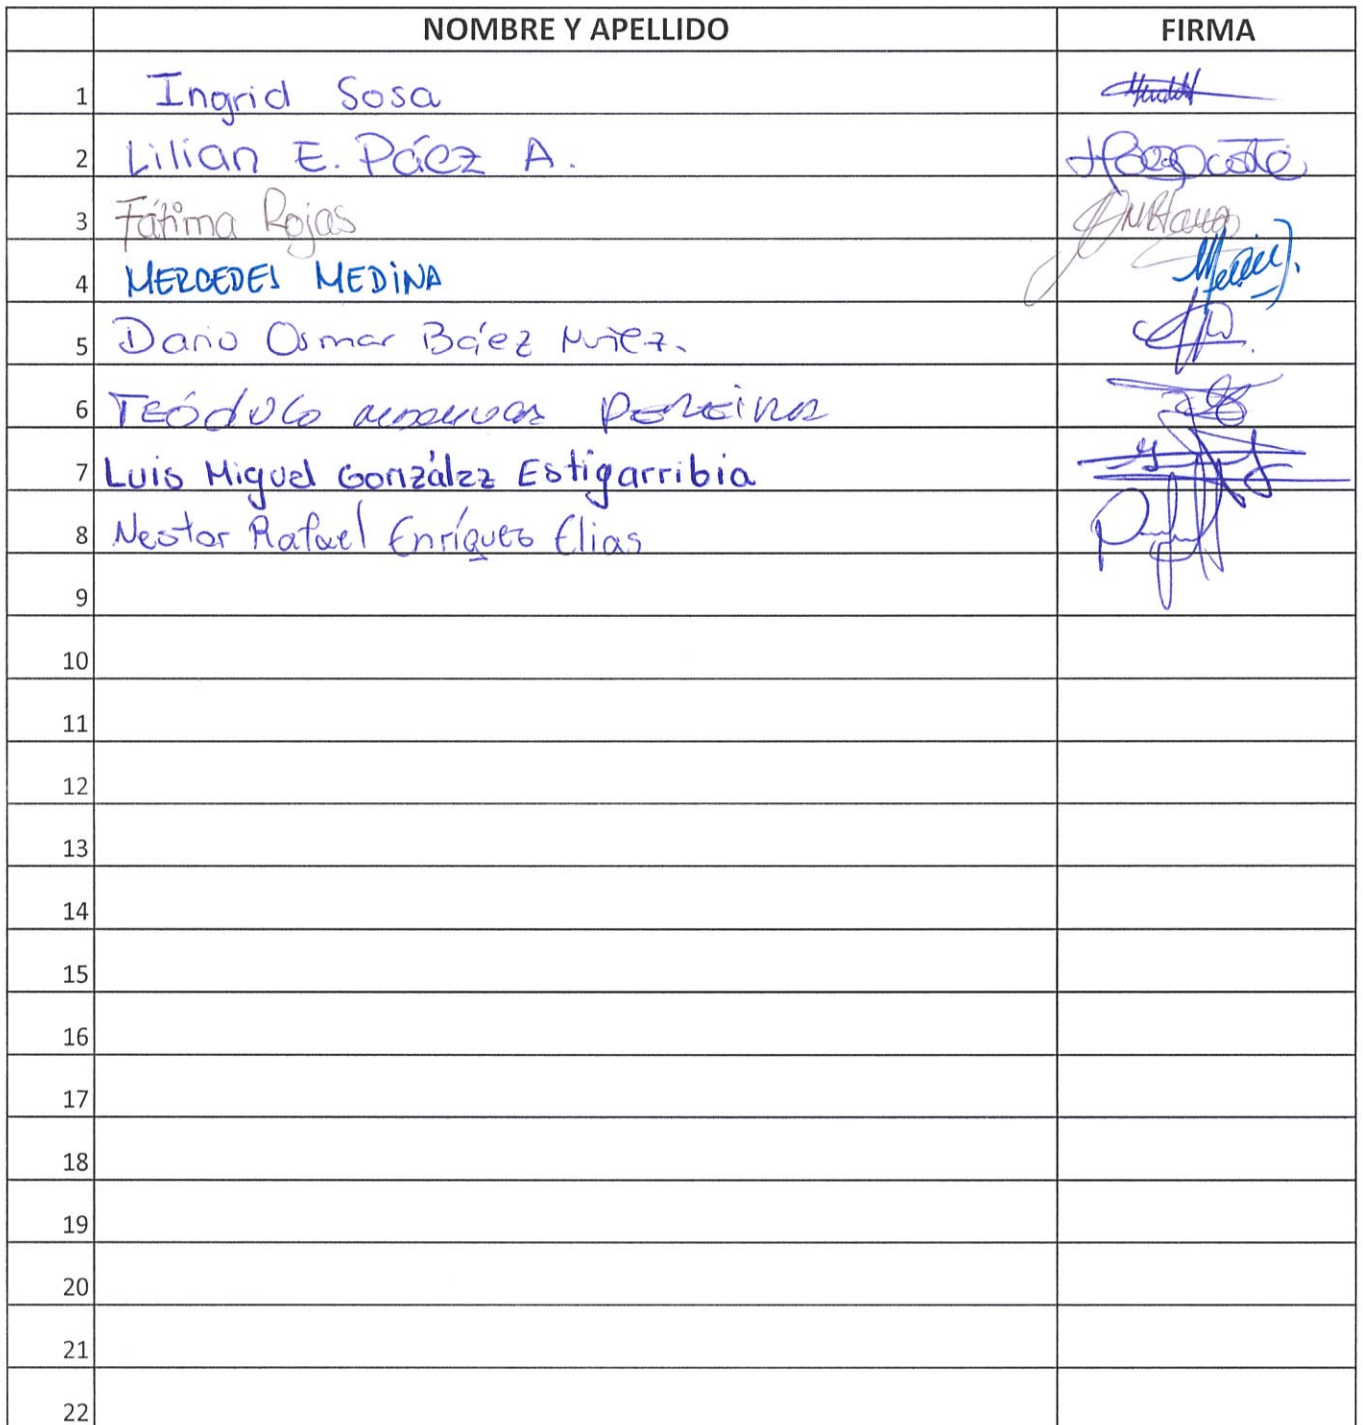 NOMBRE Y APELLIDO FIRMA
1 Ingrid Sosa
2 Lilian E. Páez A.
3 Fátima Rojas
4 MERCEDES MEDINA
5 Dario Osmar Báez
6 TEÓDULO PEREIRA
7 Luis Miguel González Estigarribia
8 Nestor Rafael Enríquez Elias
9
10
11
12
13
14
15
16
17
18
19
20
21
22